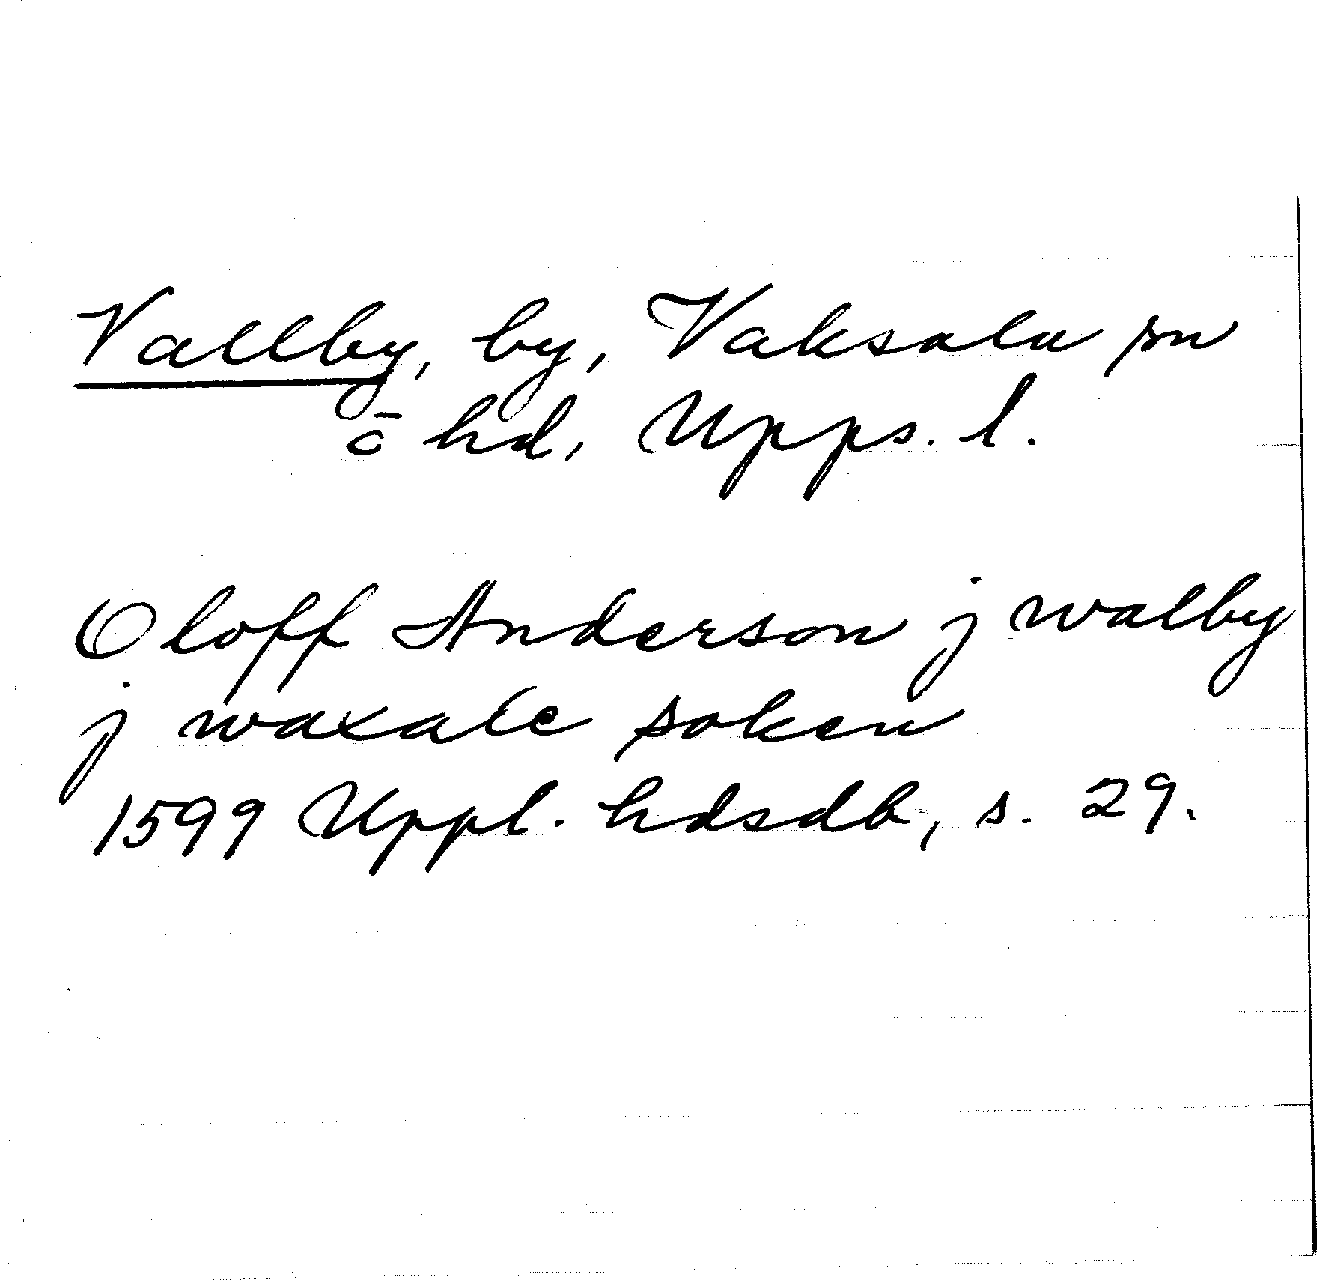 Vallby, by, Vaksala sn
o hd, Upps. l.
Oloff Anderson j walby
j waxale soken
1599 Uppl. hdsdb, s. 29.